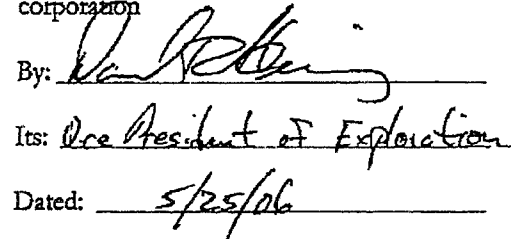 corporation
By:
Its: Vice President of Exploration
Dated: 5/25/06